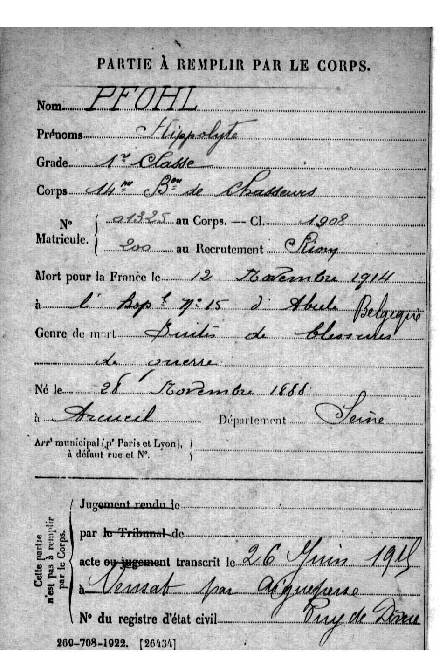 PARTIE À REMPLIR PAR LE CORPS.
Nom PFOHL
Prénoms Hippolyte
Grade 1re Classe
Corps 14me Bon de Chasseurs
No Matricule. { 01325 au Corps. — Cl. 1908
200 au Recrutement Riom
Mort pour la France le 12 Novembre 1914
à l'Hopl no 15 d' Belgique
Genre de mort Suites de blessures
de guerre
Né le 28 Novembre 1888
à Arcueil Département Seine
Arrt municipal (pr Paris et Lyon),
à défaut rue et No.
Cette partie n'est pas à remplir par le Corps.
Jugement rendu le
par le Tribunal de
acte ou jugement transcrit le 26 Juin 1915
à Vensat par Aigueperse
No du registre d'état civil Puy de Dôme
269-708-1922. [26434]